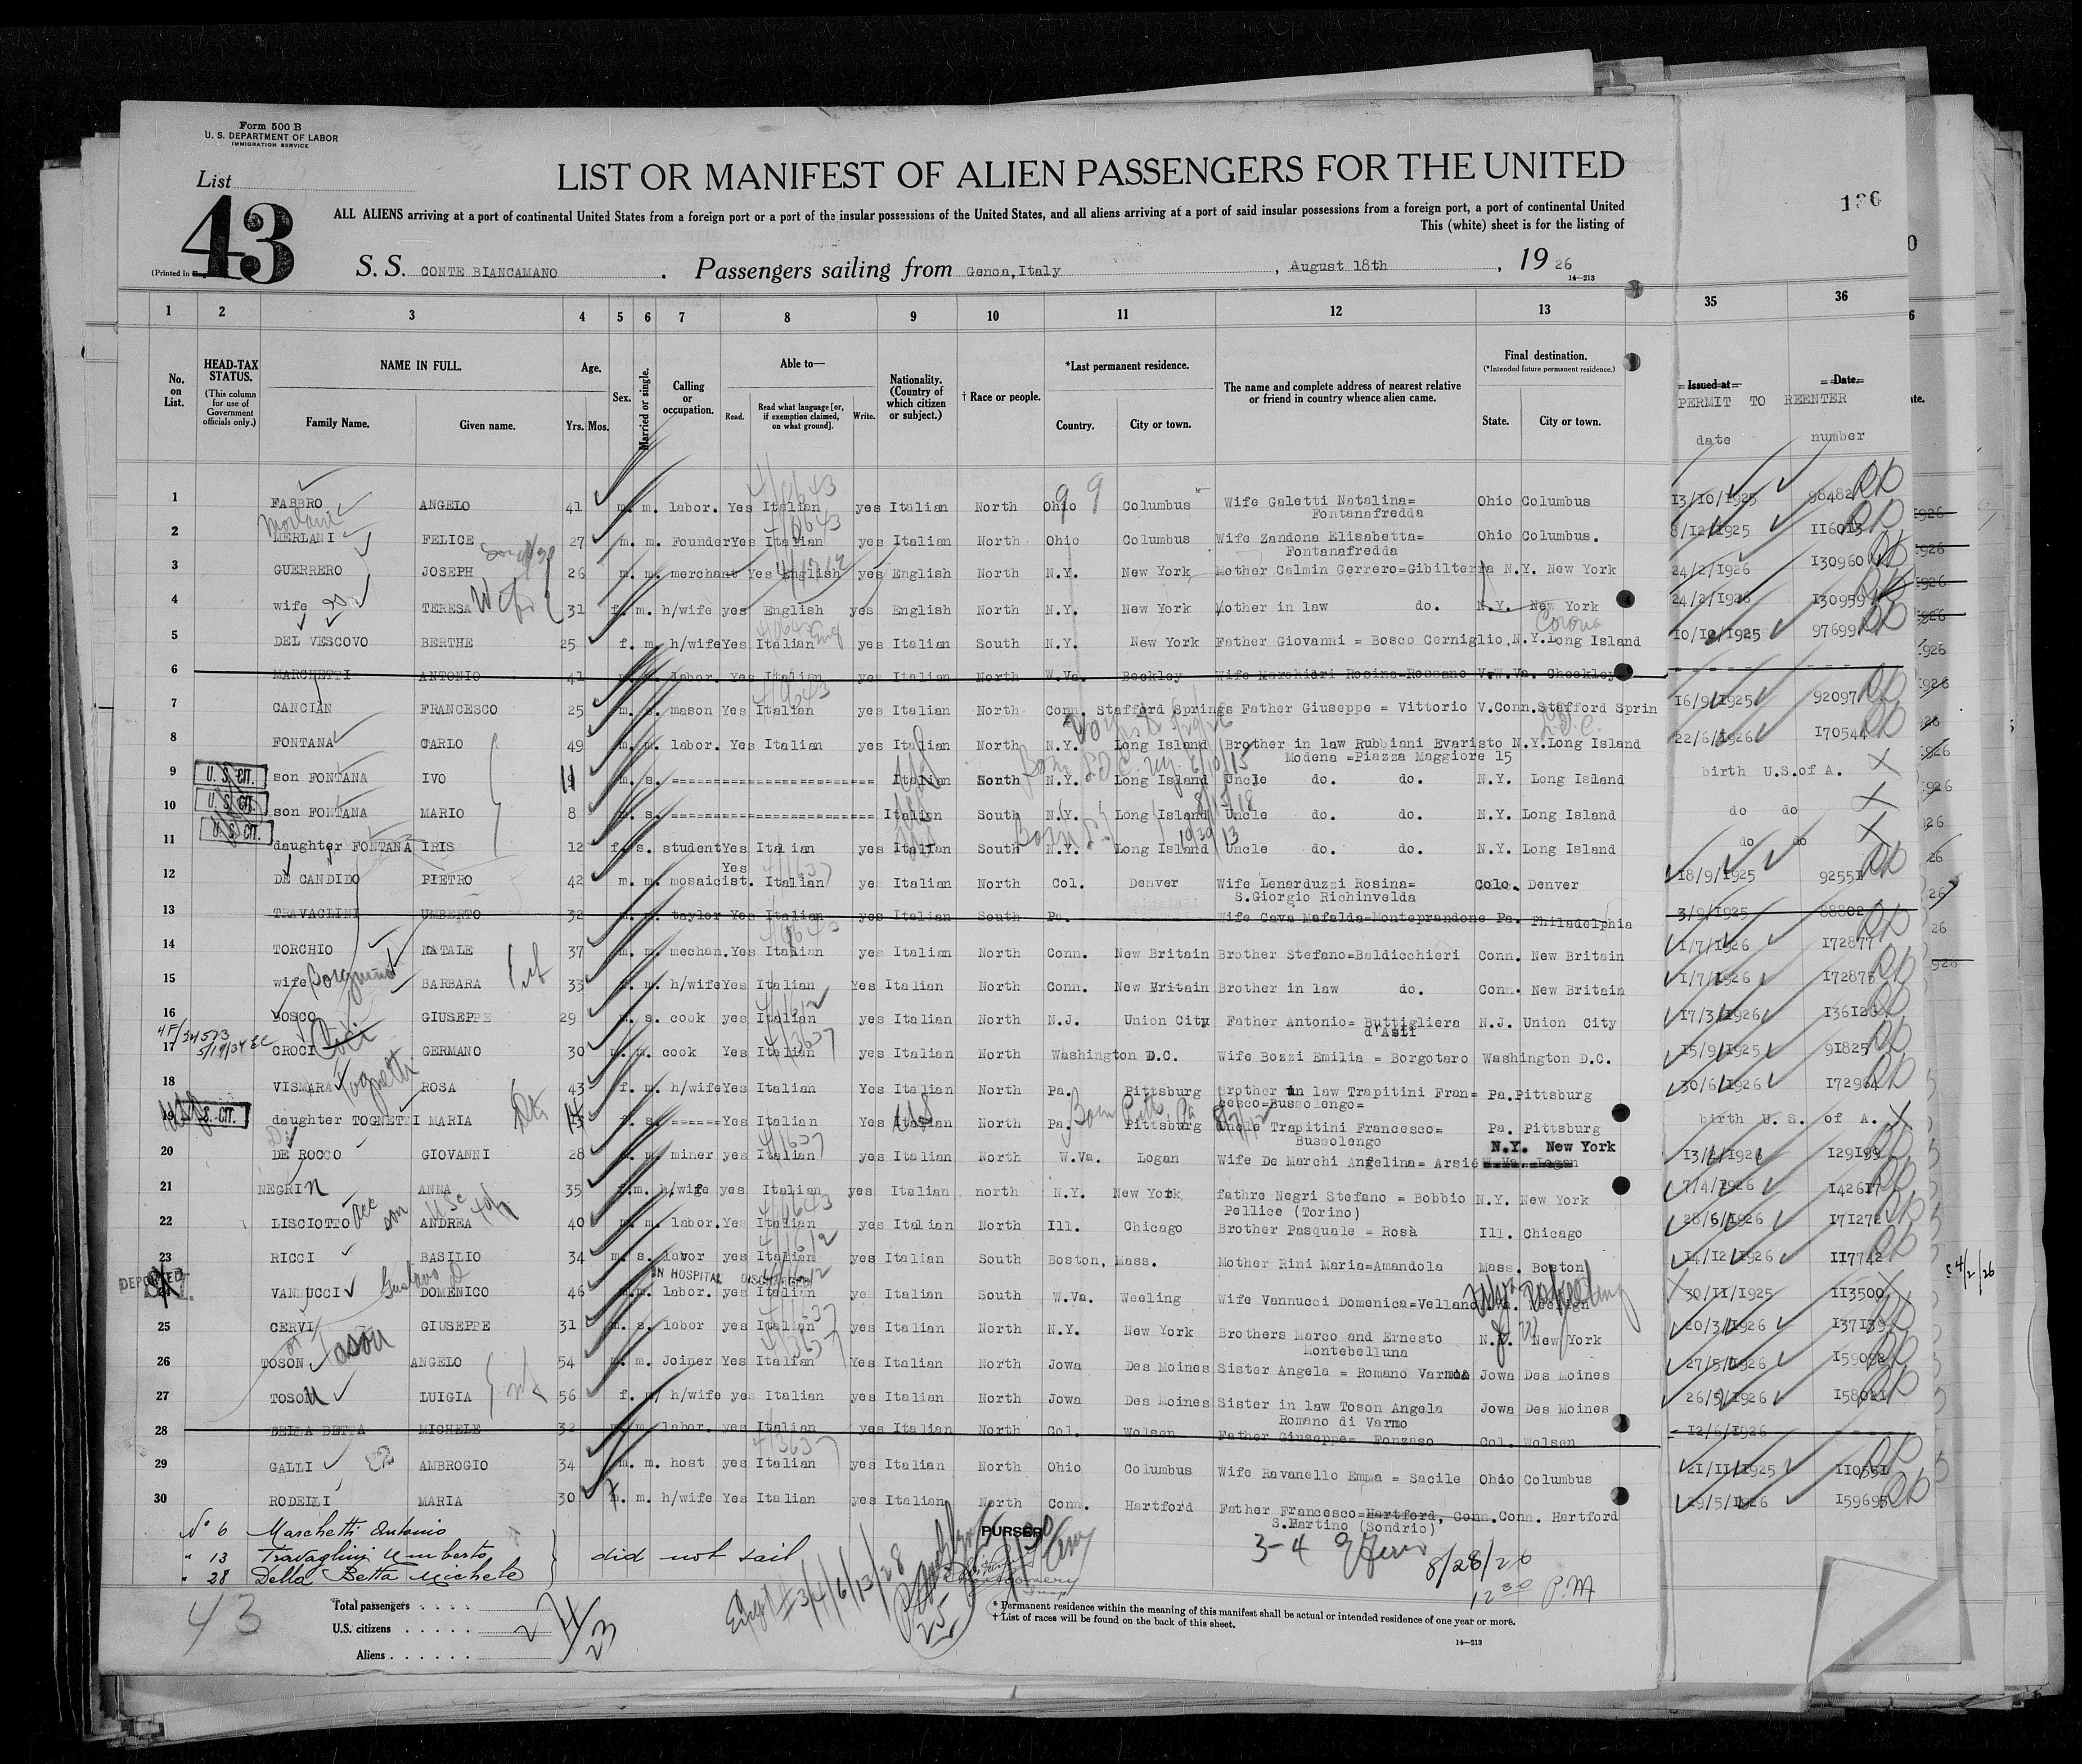 Form 500 B
U. S. DEPARTMENT OF LABOR
IMMIGRATION SERVICE
List
43
LIST OR MANIFEST OF ALIEN PASSENGERS FOR THE UNITED
136
ALL ALIENS arriving at a port of continental United States from a foreign port or a port of the insular possessions of the United States, and all aliens arriving at a port of said insular possessions from a foreign port, a port of continental United
This (white) sheet is for the listing of
(Printed in
S. S. CONTE BIANCAMANO . Passengers sailing from Genoa,Italy , August 18th , 19 26
14—213
1 2 3 4 5 6 7 8 9 10 11 12 13 35 36
No. on List. HEAD-TAX STATUS. (This column for use of Government officials only.) NAME IN FULL. Family Name. Given name. Age. Yrs. Mos. Sex. Married or single. Calling or occupation. Able to— Read. Read what language [or, if exemption claimed, on what ground]. Write. Nationality. (Country of which citizen or subject.) † Race or people. *Last permanent residence. Country. City or town. The name and complete address of nearest relative or friend in country whence alien came. Final destination. (*Intended future permanent residence.) State. City or town. Issued at Date. PERMIT TO REENTER date number
1 FABBRO ANGELO 41 m. m. labor. Yes Italian yes Italian North Ohio Columbus Wife Galetti Natalina= Fontanafredda Ohio Columbus 13/10/1925 98482
2 MERLANI FELICE 27 m. m. Founder Yes Italian yes Italian North Ohio Columbus Wife Zandona Elisabetta= Fontanafredda Ohio Columbus. 8/12/1925 116013
3 GUERRERO JOSEPH 26 m. m. merchant Yes English yes English North N.Y. New York Mother Calmin Cerrero=Gibilterra N.Y. New York 24/2/1926 130960
4 wife TERESA 31 f. m. h/wife yes English yes English North N.Y. New York Mother in law do. N.Y. New York 24/2/1926 130959
5 DEL VESCOVO BERTHE 25 f. m. h/wife Yes Italian yes Italian South N.Y. New York Father Giovanni = Bosco Cerniglio, N.Y. Long Island Corona 10/10/1925 97699
6 MARCHETTI ANTONIO 41 labor. Yes Italian yes Italian North W.Va. Beckley Wife Marchidri Rosina=Rossano V. W.Va. Checkley
7 CANCIAN FRANCESCO 25 m. s. mason Yes Italian yes Italian North Conn. Stafford Springs Father Giuseppe = Vittorio V. Conn. Stafford Sprin 16/9/1925 92097
8 FONTANA CARLO 49 m. m. labor. Yes Italian yes Italian North N.Y. Long Island Brother in law Rubbiani Evaristo Modena =Piazza Maggiore 15 N.Y. Long Island 22/6/1926 170544
9 U. S. CIT. son FONTANA IVO 11 m. s. Italian North N.Y. Long Island Uncle do. do. N.Y. Long Island birth U.S.of A.
10 U. S. CIT. son FONTANA MARIO 8 m. s. Italian South N.Y. Long Island Uncle do. do. N.Y. Long Island do do
11 U. S. CIT. daughter FONTANA IRIS 12 f. s. student Yes Italian yes Italian South N.Y. Long Island Uncle do. do. N.Y. Long Island do do
12 DE CANDIDO PIETRO 42 m. m. mosaicist. Yes Italian yes Italian North Col. Denver Wife Lenarduzzi Rosina= S.Giorgio Richinvelda Colo. Denver 18/9/1925 92551
13 TRAVAGLINI UMBERTO 32 m. m. taylor Yes Italian yes Italian South Pa. Wife Cava Mafalda=Monteprandone Pa. Philadelphia 3/9/1925 88802
14 TORCHIO NATALE 37 m. m. mechan. Yes Italian yes Italian North Conn. New Britain Brother Stefano=Baldicchieri Conn. New Britain 1/7/1926 172877
15 wife Borgnino BARBARA 33 f. m. h/wife Yes Italian Yes Italian North Conn. New Britain Brother in law do. Conn. New Britain 1/7/1926 172875
16 BOSCO GIUSEPPE 29 m. s. cook yes Italian yes Italian North N.J. Union City Father Antonio= Buttigliera d'Asti N.J. Union City 17/3/1926 136126
17 CROCI GERMANO 30 m. m. cook Yes Italian yes Italian North Washington D.C. Wife Bozzi Emilia = Borgotaro Washington D.C. 15/9/1925 91825
18 VISMARA Tognetti ROSA 43 f. m. h/wife Yes Italian Yes Italian North Pa. Pittsburg Brother in law Trapitini Fran= cesco=Bussolengo= Pa. Pittsburg 30/6/1926 172964
19 S. CIT. daughter TOGNETTI MARIA f. s. Yes Italian Yes Italian North Pa. Pittsburg Uncle Trapitini Francesco= Bussolengo Pa. Pittsburg birth U. S. of A.
20 DE ROCCO GIOVANNI 28 m. m. miner yes Italian yes Italian North W.Va. Logan Wife De Marchi Angelina= Arsié N.Y. New York 13/2/1926 129199
21 NEGRIN ANNA 35 f. m. h/wife yes Italian yes Italian north N.Y. New York fathre Negri Stefano = Bobbio Pellice (Torino) N.Y. New York 7/4/1926 142617
22 LISCIOTTO ANDREA 40 m. m. labor. Yes Italian yes Italian North Ill. Chicago Brother Pasquale = Rosà Ill. Chicago 28/6/1926 171272
23 RICCI BASILIO 34 m. s. labor yes Italian yes Italian South Boston, Mass. Mother Rini Maria=Amandola Mass. Boston 14/12/1926 117742
DEPORTED IN HOSPITAL DISCHARGED
24 VANNUCCI DOMENICO 46 m. m. labor. yes Italian ye Italian South W.Va. Weeling Wife Vannucci Domenica=Vellano 30/11/1925 113500
25 CERVI GIUSEPPE 31 m. s. labor yes Italian yes Italian North N.Y. New York Brothers Marco and Ernesto Montebelluna N.Y. New York 20/3/1926 137139
26 TOSON ANGELO 54 m. m. Joiner Yes Italian Yes Italian North Jowa Des Moines Sister Angela = Romano Varmo Jowa Des Moines 27/5/1926 159092
27 TOSON LUIGIA 56 f. h/wife yes Italian yes Italian North Jowa Des Moines Sister in law Toson Angela Romano di Varmo Jowa Des Moines 26/5/1926 158021
28 DELLA BETTA MICHELE 32 m. m. labor. yes Italian yes Italian North Col. Wolsen Father Giuseppe= Fonzaso Col. Wolsen 12/6/1926
29 GALLI AMBROGIO 34 m. m. host yes Italian yes Italian North Ohio Columbus Wife Ravanello Emma = Sacile Ohio Columbus 21/11/1925 110551
30 RODEILLI MARIA 30 m. m. h/wife Yes Italian yes Italian North Conn. Hartford Father Francesco=Hartford, Conn. S.Martino (Sondrio) Conn. Hartford 29/5/1926 159695
No 6 Marchetti Antonio
" 13 Travaglini Umberto
" 28 Della Betta Michele
did not sail
PURSER
3-4
8/28/26
12 30 P.M
43
Total passengers
U.S. citizens
Aliens
* Permanent residence within the meaning of this manifest shall be actual or intended residence of one year or more.
† List of races will be found on the back of this sheet.
14—213